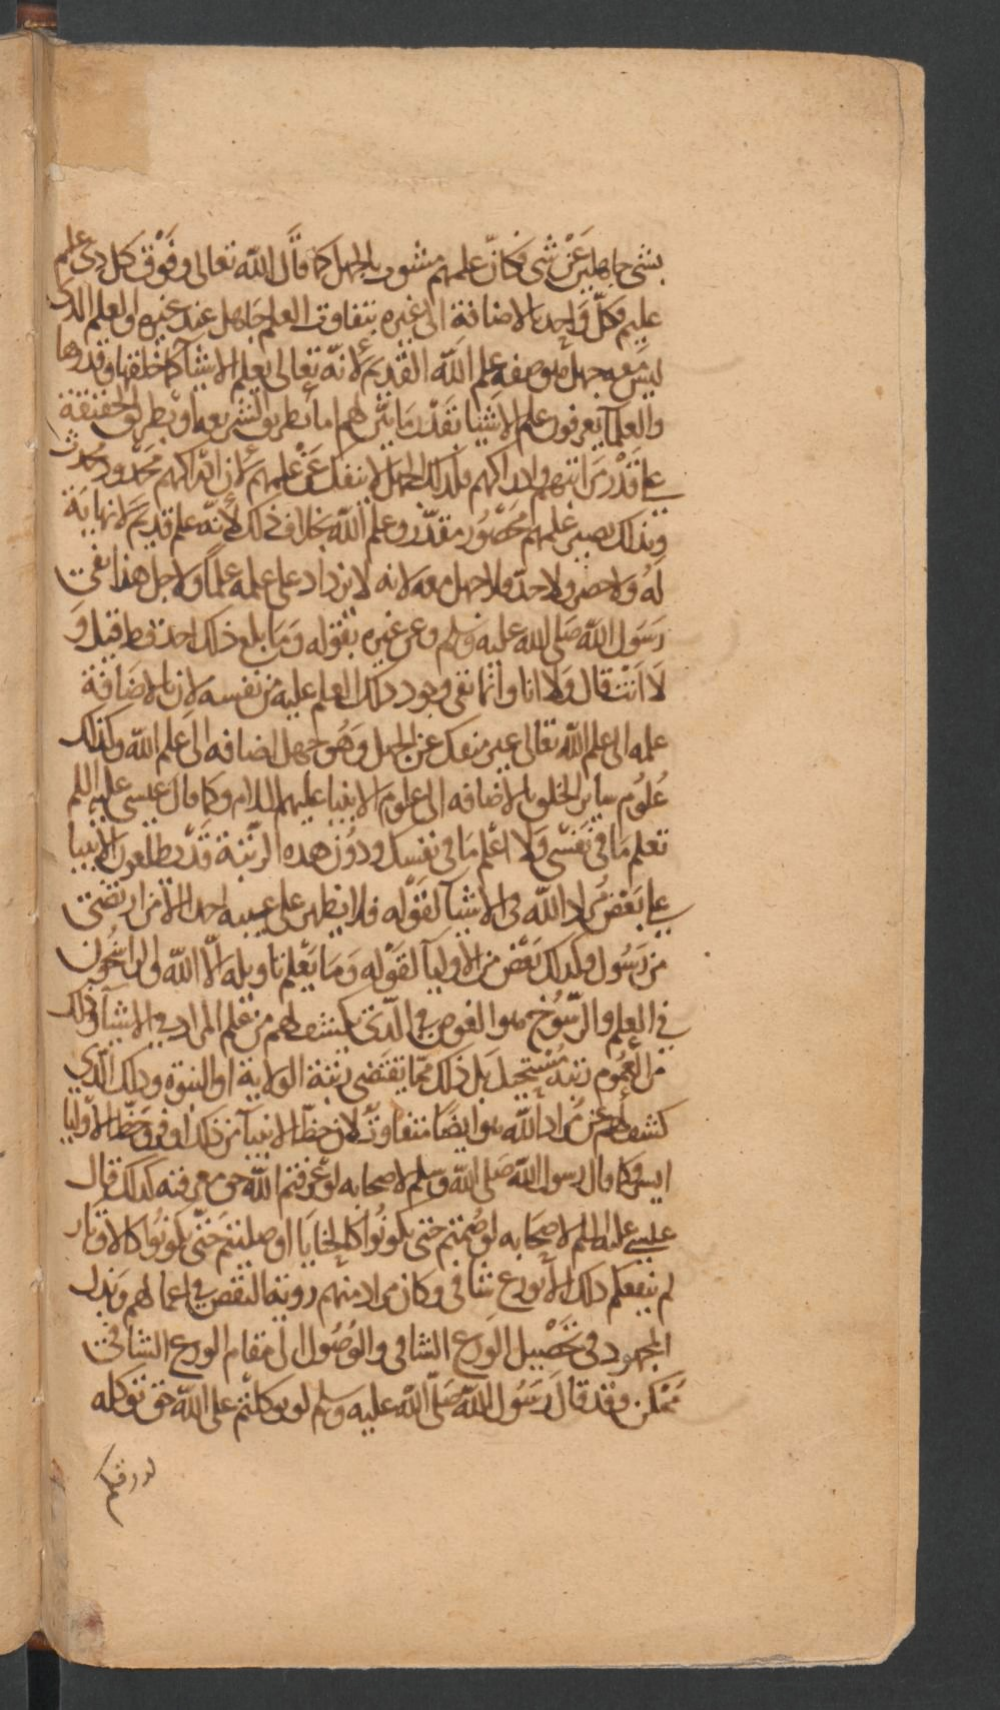 بشئ جاهلين عَنْ شئ فكانّ علمهم مشوب بالجهل كما قَال اللّه تعالى وفَوْق كل ذي علم
عليم فكلّ وَاحد بالاضافة الى غيره بتفاوت العلم جَاهل عند غيره والعلم الذى
ليسَ معه جهل هو صفه علم اللّه القديم لانّه تعالى يعلم الاشيآ كما خلقها وقدرها
والعلمآ يعرفون علم الاشيا بقَدْر مَا تبيّن لهم اما بطريق الشريعه او بطريق الحقيقة
على قَدْر مَراتبهم وادراكهم فلذلك الجهل لا ينفك عَنْ علمهم لأن ادراكهم مَحْدود محدث
وبذلك يصير علمهم مَحْصُور مقدّر وعلم اللّه بخلاف ذلك لأنّه علم قديم لا نهايَة
لهُ ولا حصر ولا حدّ ولا جهل معه لانه لا يزداد على علمه علماً ولاجل هذا نفى
رَسَول اللّه صَلى اللّه عليه وَسلم وعن غيره بقوله وَمَا بلغ ذلك احد قط قيل وَ
لَا اَنْتَ قال وَلَا انا وانما نفى وجود ذلك العلم عليه من نفسه لان بالاضَافة
علمه الى علم اللّه تعالى غير منفك عن الجهل وَهُو جهل اضافه الى عَلم اللّه وكذلك
عُلوُم سائر الخلق بالاضافه الى علوم الانبيا عليهم السلام وكما قال عيسى عليه السلم
تعلم مَا في نَفسْي وَلَا اعْلم مَا في نفسك ودوُن هذه الرتبة قَدْ يطلعون الأنبيا
على بَعْض مُراد اللّه في الاشيآ لقَوْله فلا يظهر على غيبه احدا الا من ارتضى
من رَسُول وكذلك بَعْض من الأوليآ لقَوْله وَمَا يَعْلم تاويله الّا اللّه والراسخُون
في العلم والرّسُوخ هو الغوص في الّذى يكشف لهم من علم المراد في الاشيآ وذلك
من العُمُوم رتبة مُسْتحيل بَل ذلك ممّا تقتضى رتبة الولاية او النبوة وذلك الّذي
كشف لهم عن مُراد اللّه هو ايضًا متفاوتٌ لان حظّ الانبيآ من ذلك اوفر وَحَظّ الأوليا
ايسر كما قال رسول اللّه صَلى اللّه وسلم لاصحابه لوْ عَرَفتم اللّه حق معرفته كذلك قال
عليه السلم لاصحَابه لو صُمتم حتى تكونُوا كالحنَايَا او صليتم حَتّى تكونُوا كالاوتار
لم ينفعكم ذلك الا بورع شافى وكان مرادمنهم رؤية النقص في اعمالهم وبَذل
المجهود في تَحْصيل الوَرع الشافى والوُصُول الى مقام الورع الشافى
مَمْكن وقد قال رَسُول اللّه صَلّى اللّه عليه وسلم لو توكلتم على اللّه حق توكله
لرزقكم